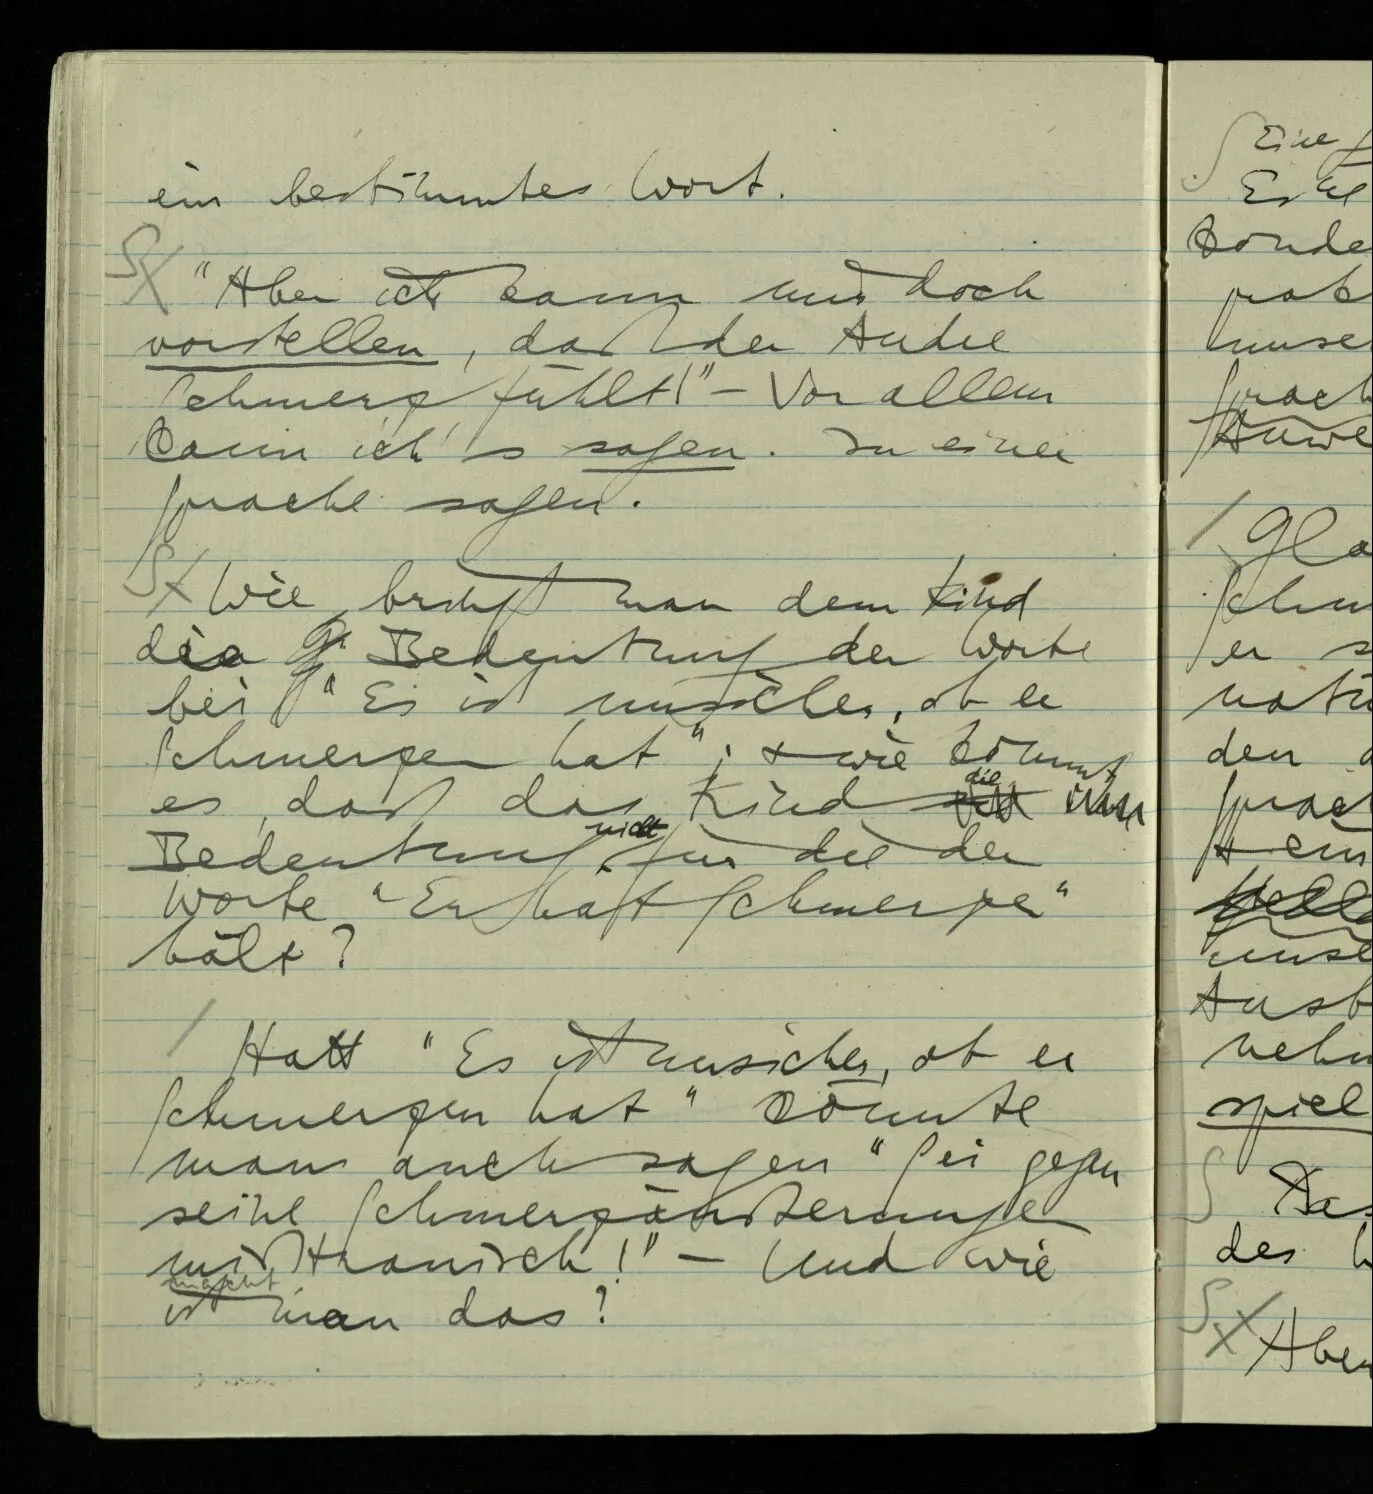 ein bestimmtes Wort.
"Aber ich kann mir doch
vorstellen, daß der Andre
Schmerz fühlt!" – Vor allem
kann ich's sagen. In einer
Sprache sagen.
Wie bringt man dem Kind
die Bedeutung der Worte
bei "Es ist unsicher, ob er
Schmerzen hat"; + wie kommt
es, daß das Kind die
Bedeutung nicht für die der
Worte "Er hat Schmerzen"
hält?
Statt "Es ist unsicher, ob er
Schmerzen hat" könnte
man auch sagen "Sei gegen
seine Schmerzäußerungen
mißtrauisch!" – Und wie
macht
ist man das?
Eine
Es
sonde
unse
Sprach
Anwe
Gla
Schm
er s
natü
den
Sprac
ein
unse
Ausb
nehm
spiel
Das
des
Aber